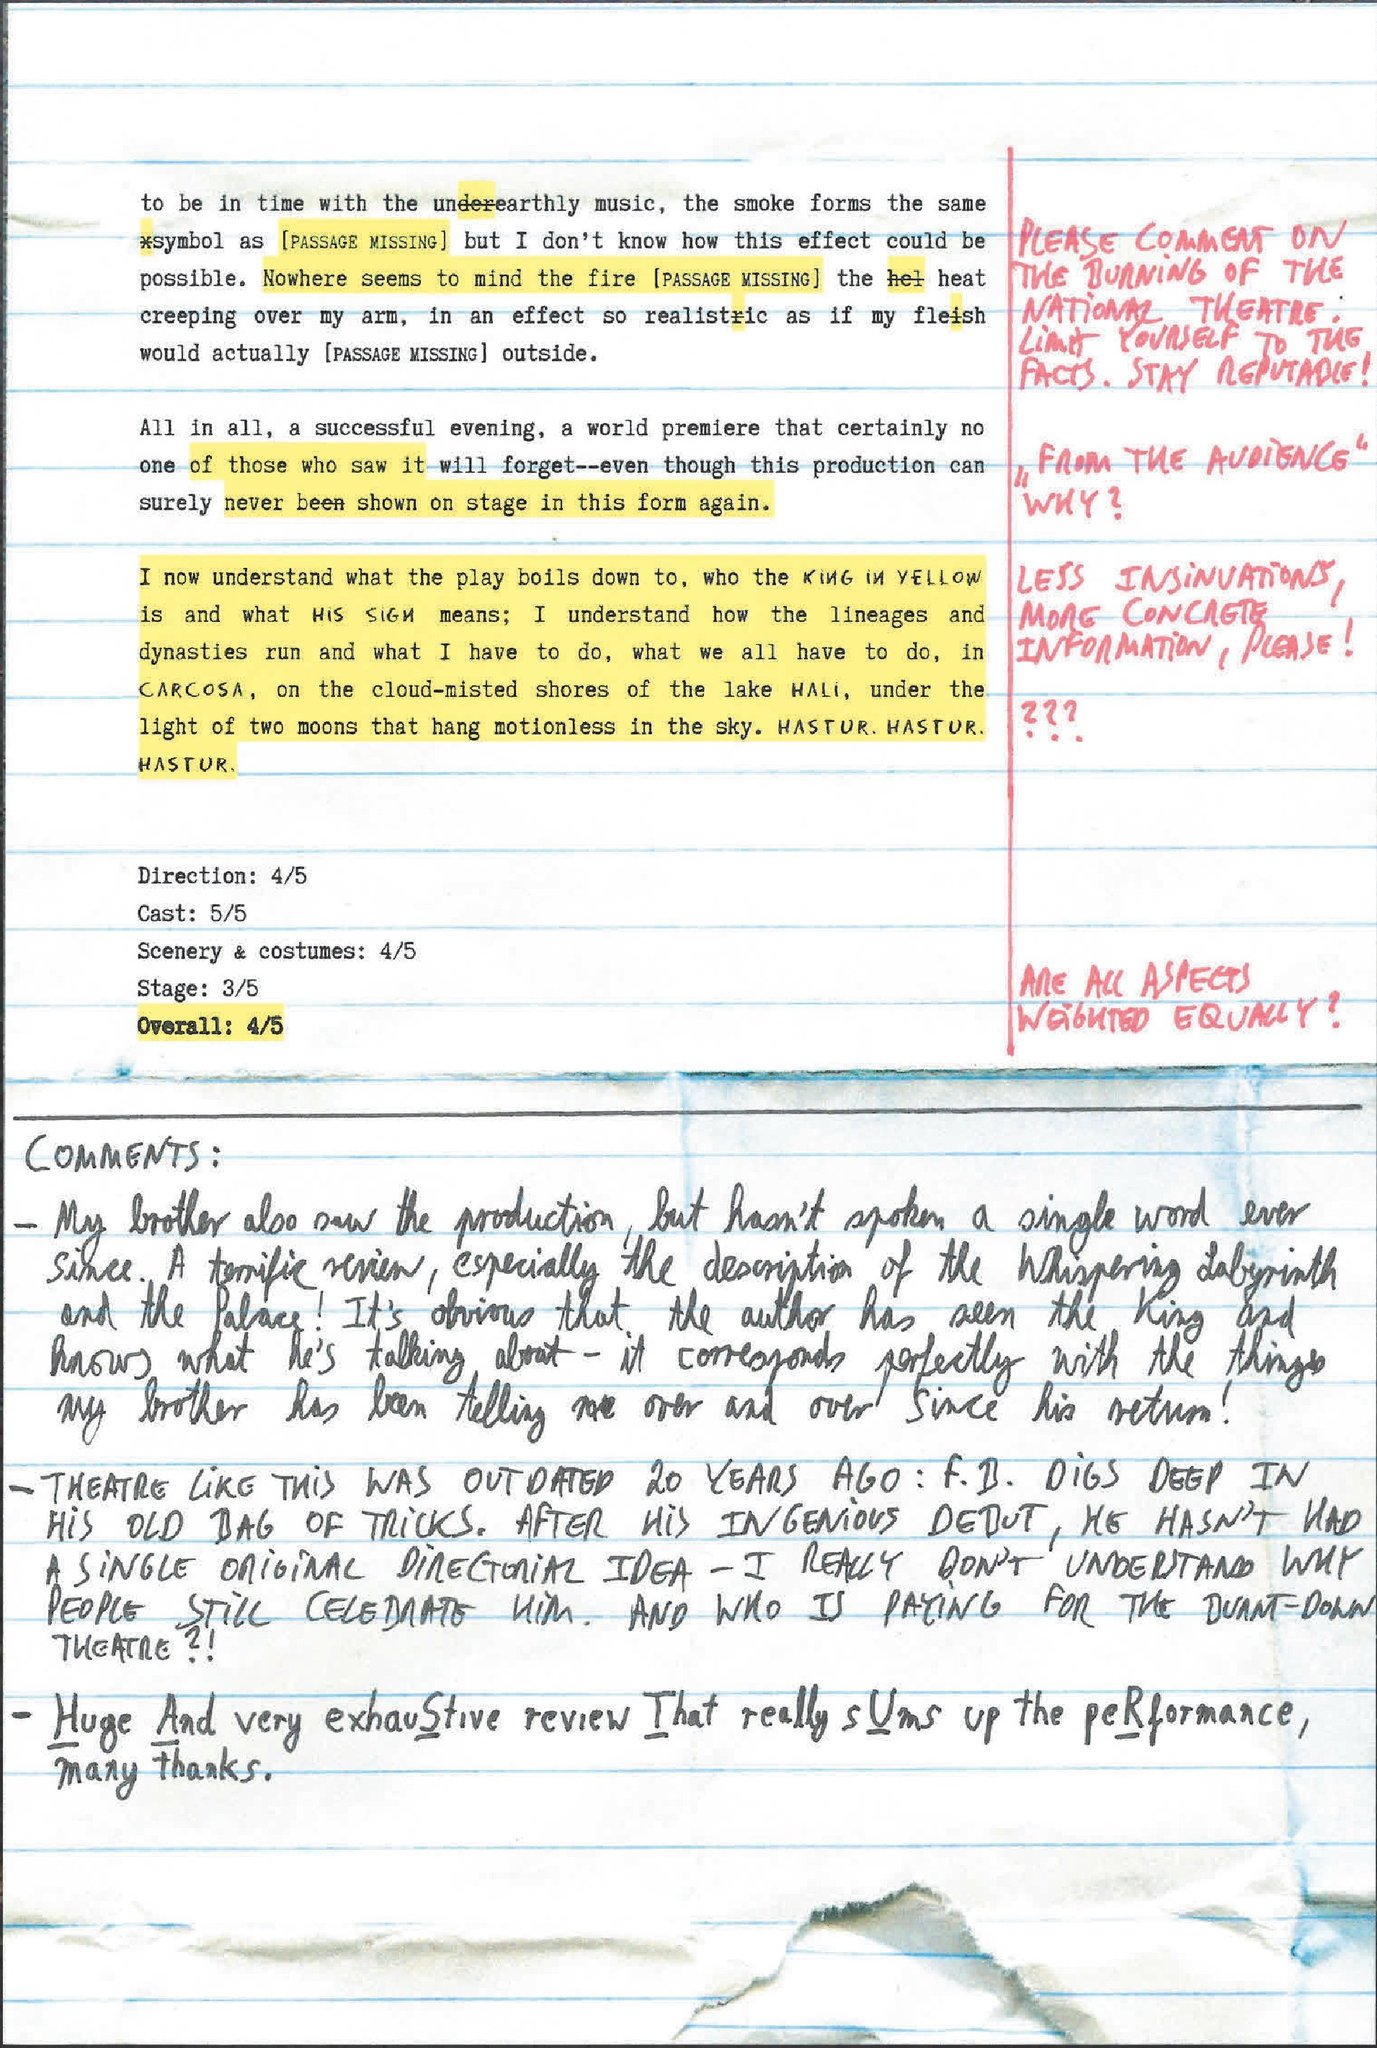 to be in time with the underearthly music, the smoke forms the same
xsymbol as [PASSAGE MISSING] but I don't know how this effect could be
possible. Nowhere seems to mind the fire [PASSAGE MISSING] the hel heat
creeping over my arm, in an effect so realistric as if my fleish
would actually [PASSAGE MISSING] outside.
All in all, a successful evening, a world premiere that certainly no
one of those who saw it will forget--even though this production can
surely never been shown on stage in this form again.
I now understand what the play boils down to, who the KING IN YELLOW
is and what HIS SIGN means; I understand how the lineages and
dynasties run and what I have to do, what we all have to do, in
CARCOSA, on the cloud-misted shores of the lake HALI, under the
light of two moons that hang motionless in the sky. HASTUR. HASTUR.
HASTUR.
Direction: 4/5
Cast: 5/5
Scenery & costumes: 4/5
Stage: 3/5
Overall: 4/5
PLEASE COMMENT ON
THE BURNING OF THE
NATIONAL THEATRE.
LIMIT YOURSELF TO THE
FACTS. STAY REPUTABLE!
„FROM THE AUDIENCE“
WHY?
LESS INSINUATIONS,
MORE CONCRETE
INFORMATION, PLEASE!
???
ARE ALL ASPECTS
WEIGHTED EQUALLY?
COMMENTS:
- My brother also saw the production, but hasn't spoken a single word ever
since. A terrific review, especially the description of the Whispering Labyrinth
and the Palace! It's obvious that the author has seen the King and
knows what he's talking about - it corresponds perfectly with the things
my brother has been telling me over and over since his return!
- THEATRE LIKE THIS WAS OUTDATED 20 YEARS AGO: F.B. DIGS DEEP IN
HIS OLD BAG OF TRICKS. AFTER HIS INGENIOUS DEBUT, HE HASN'T HAD
A SINGLE ORIGINAL DIRECTORIAL IDEA - I REALLY DON'T UNDERSTAND WHY
PEOPLE STILL CELEBRATE HIM. AND WHO IS PAYING FOR THE BURNT-DOWN
THEATRE?!
- Huge And very exhauStive review That really sUms up the peRformance,
many thanks.